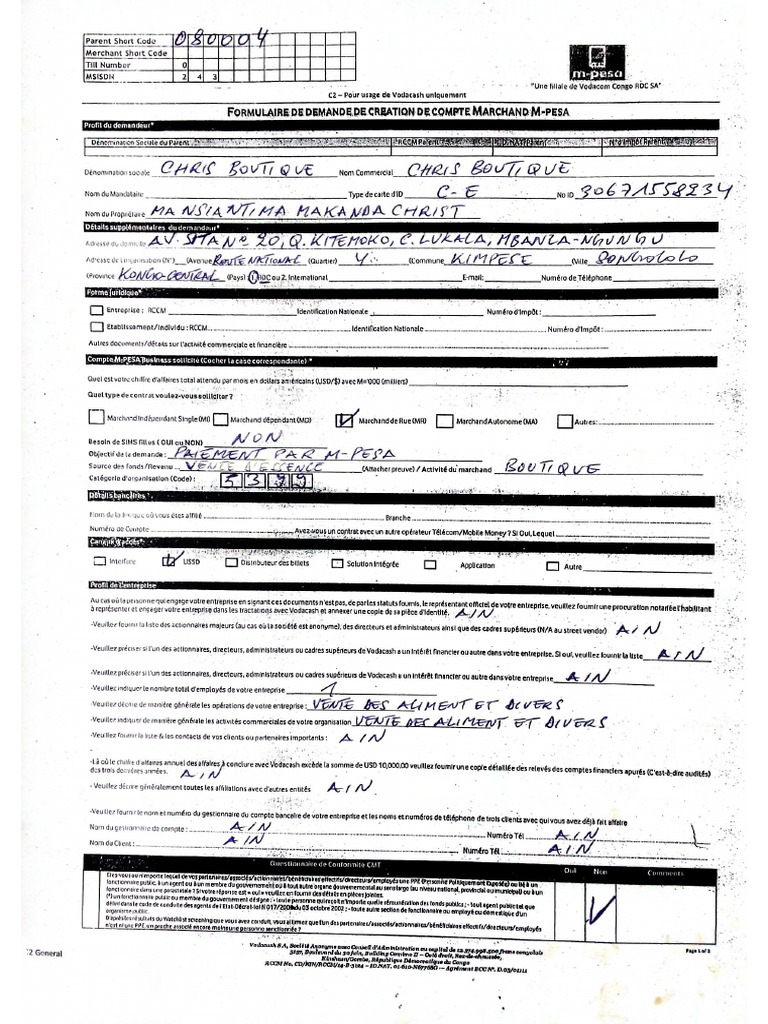 Parent Short Code 080004
Merchant Short Code
Till Number 0
MSISDN 2 4 3
m-pesa
"Une filiale de Vodacom Congo RDC SA"
C2 – Pour usage de Vodacash uniquement
FORMULAIRE DE DEMANDE DE CREATION DE COMPTE MARCHAND M-PESA
Profil du demandeur*
Dénomination Sociale du Parent RCCM Parent
Dénomination sociale CHRIS BOUTIQUE Nom Commercial CHRIS BOUTIQUE
Nom du Mandataire Type de carte d'ID C-E No ID 30671558234
Nom du Propriétaire MANSIANTIMA MAKANDA CHRIST
Détails supplémentaires du demandeur*
Adresse du domicile AV. SITA N° 20, Q. KITEMOKO, C. LUKALA, MBANZA-NGUNGU
Adresse de l'organisation (N°) (Avenue ROUTE NATIONAL (Quartier) 4 (Commune KIMPESE (Ville SONGOLOLO
(Province KONGO-CENTRAL (Pays) : 1. RDC ou 2. International E-mail: Numéro de Téléphone
Forme juridique*
Entreprise : RCCM Identification Nationale Numéro d'Impôt :
Etablissement/Individu : RCCM Identification Nationale Numéro d'Impôt :
Autres documents/détails sur l'activité commerciale et financière
Compte M-PESA Business sollicité (Cocher la case correspondante) *
Quel est votre chiffre d'affaires total attendu par mois en dollars américains (USD/$) avec M='000 (milliers)
Quel type de contrat voulez-vous solliciter ?
Marchand Indépendant Single (MI) Marchand dépendant (MD) Marchand de Rue (MR) Marchand Autonome (MA) Autres:
Besoin de SIMS filles ( OUI ou NON) NON
Objectif de la demande : PAIEMENT PAR M-PESA
Source des fonds/Revenu VENTE D'ESSENCE (Attacher preuve) / Activité du marchand BOUTIQUE
Catégorie d'organisation (Code) : 5399
Détails bancaires
Nom de la banque où vous êtes affilié Branche
Numéro de Compte Avez-vous un contrat avec un autre opérateur Télécom/Mobile Money ? Si Oui, Lequel
Canaux d'accès*
Interface USSD Distributeur des billets Solution Intégrée Application Autre
Profil de l'entreprise
Au cas où la personne qui engage votre entreprise en signant ces documents n'est pas, de par les statuts fournis, le représentant officiel de votre entreprise, veuillez fournir une procuration notariée l'habilitant
à représenter et engager votre entreprise dans les tractations avec Vodacash et annexer une copie de sa pièce d'identité. AIN
-Veuillez fournir la liste des actionnaires majeurs (au cas où la société est anonyme), des directeurs et administrateurs ainsi que des cadres supérieurs (N/A au street vendor) AIN
-Veuillez préciser si l'un des actionnaires, directeurs, administrateurs ou cadres supérieurs de Vodacash a un intérêt financier ou autre dans votre entreprise. Si oui, veuillez fournir la liste AIN
-Veuillez préciser si l'un des actionnaires, directeurs, administrateurs ou cadres supérieurs de Vodacash a un intérêt financier ou autre dans votre entreprise AIN
-Veuillez indiquer le nombre total d'employés de votre entreprise 1
-Veuillez décrire de manière générale les opérations de votre entreprise : VENTE DES ALIMENT ET DIVERS
-Veuillez indiquer de manière générale les activités commerciales de votre organisation VENTE DES ALIMENT ET DIVERS
-Veuillez fournir la liste & les contacts de vos clients ou partenaires importants : AIN
-Là où le chiffre d'affaires annuel des affaires à conclure avec Vodacash excède la somme de USD 10,000,00 veuillez fournir une copie détaillée des relevés des comptes financiers apurés (C'est-à-dire audités)
des trois dernières années. AIN
-Veuillez décrire généralement toutes les affiliations avec d'autres entités AIN
-Veuillez fournir le nom et numéro du gestionnaire du compte bancaire de votre entreprise et les noms et numéros de téléphone de trois clients avec qui vous avez déjà fait affaire
Nom du gestionnaire de compte : AIN Numéro Tél AIN
Nom du Client : AIN Numéro Tél AIN
Questionnaire de Conformité CMT Oui Non Comments
Page 1 of 2
C2 General